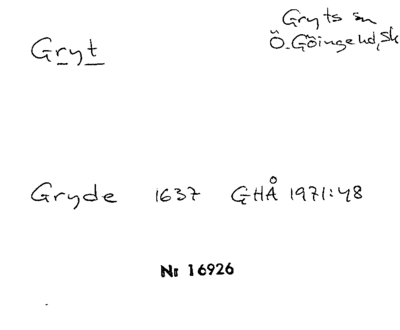 Gryt
Gryts sn
Ö. Göinge hd, Sk
Gryde 1637 GHÅ 1971:48
Nr 16926